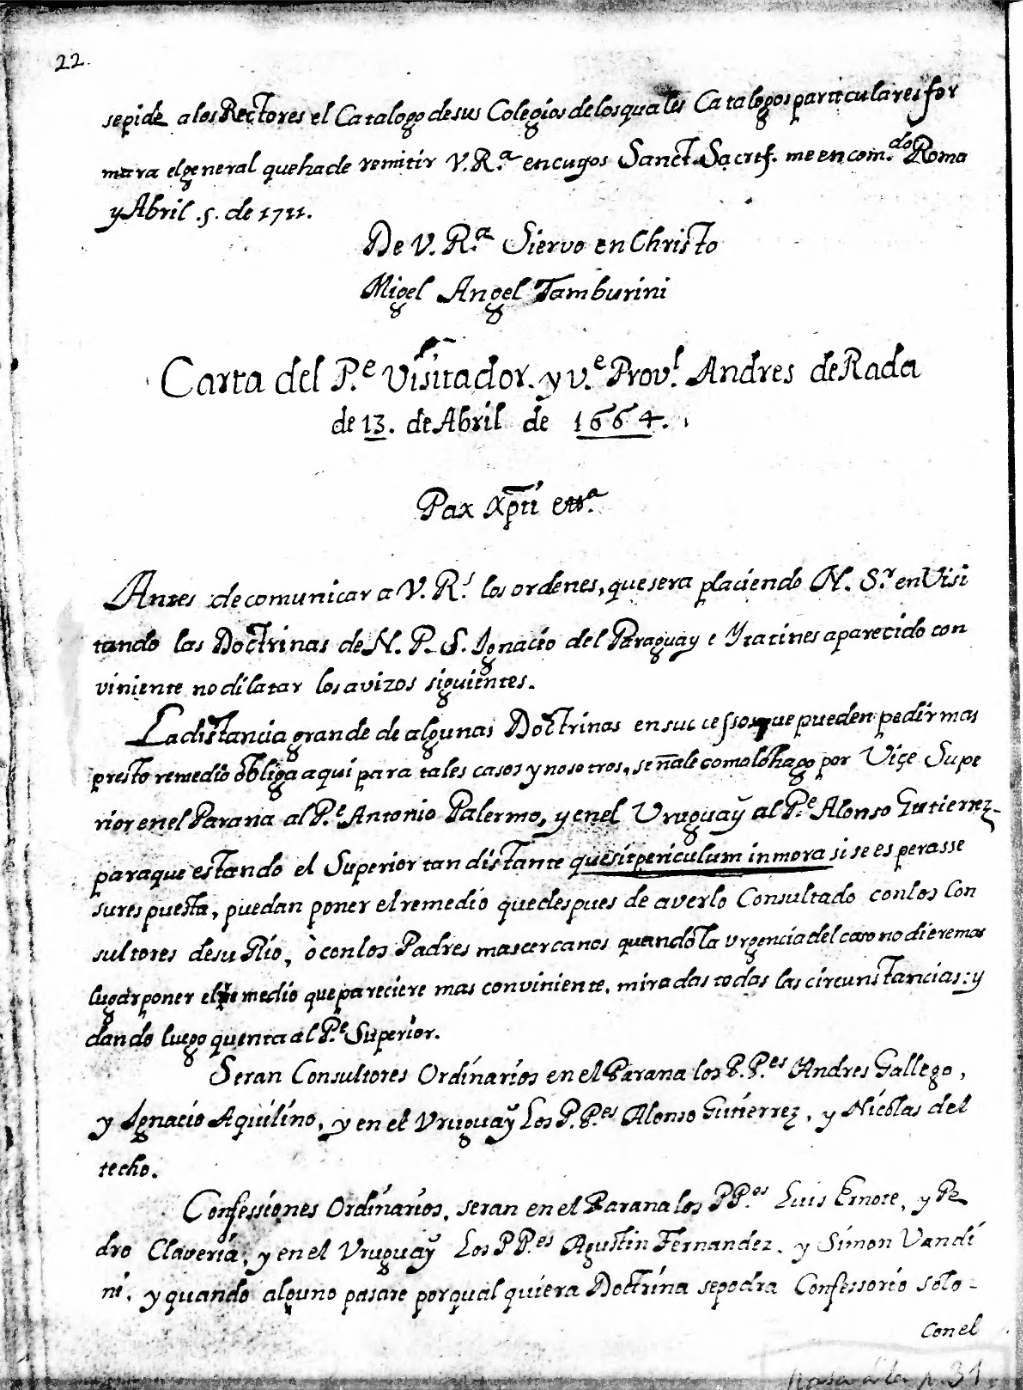 22.
sepide a los Rectores el Catalogo de sus Colegios de los quales Catalogos particulares for
mara el general que ha de remitir V.R.ª en cuyos Sanct. Sacrif. me encom.do Roma
y Abril .5. de 1711.
De V. R.ª Siervo en Christo
Migel Angel Tamburini
Carta del P.e Visitador. y v.e Prov.l Andres de Rada
de 13. de Abril de 1664.
Pax Xpti etta.
Antes de comunicar a V. R.s los ordenes, que sera placiendo N. S.r en Visi
tando las Doctrinas de N. P. S. Ignacio del Paraguay e Ytatines aparecido con
viniente no dilatar los avizos siguientes.
La distancia grande de algunas Doctrinas en sucessos que pueden pedir mas
presto remedio obliga aqui para tales casos y no sotros, señale como lo hago por Viçe Supe
rior en el Parana al P.e Antonio Palermo, y en el Uruguay al P.e Alonso Gutierrez
para que estando el Superior tan distante que sit periculum in mora si se es perasse
su res puesta, puedan poner el remedio que despues de averlo Consultado con los Con
sultores de su Rio, ò con los Padres mas cercanos quando la urgencia del caso no dieremas
lugar poner el remedio que pareciere mas conviniente, miradas todas las circunstancias: y
dando luego quenta al P.e Superior.
Seran Consultores Ordinarios en el Parana los P.P.es Andres Gallego,
y Ignacio Aquilino, y en el Uruguay Los P.P.es Alonso Gutierrez, y Nicolas del
techo.
Confessiones Ordinarios, seran en el Parana los PP.es Luis Ernote, y Pe
dro Claveria, y en el Uruguay Los PP.es Agustin Fernandez. y Simon Vandi
ni, y quando alguno pasare por qual quiera Doctrina se podra Confessorio solo-
con el
pasa á la p. 31